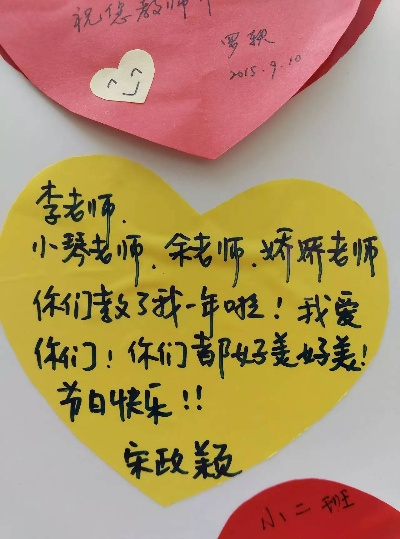 祝您教师节
罗颖
2015.9.10
李老师.
小琴老师.余老师.娇娇老师
你们教了我一年啦！我爱
你们！你们都好美好美！
节日快乐!!
宋政颖
小二班